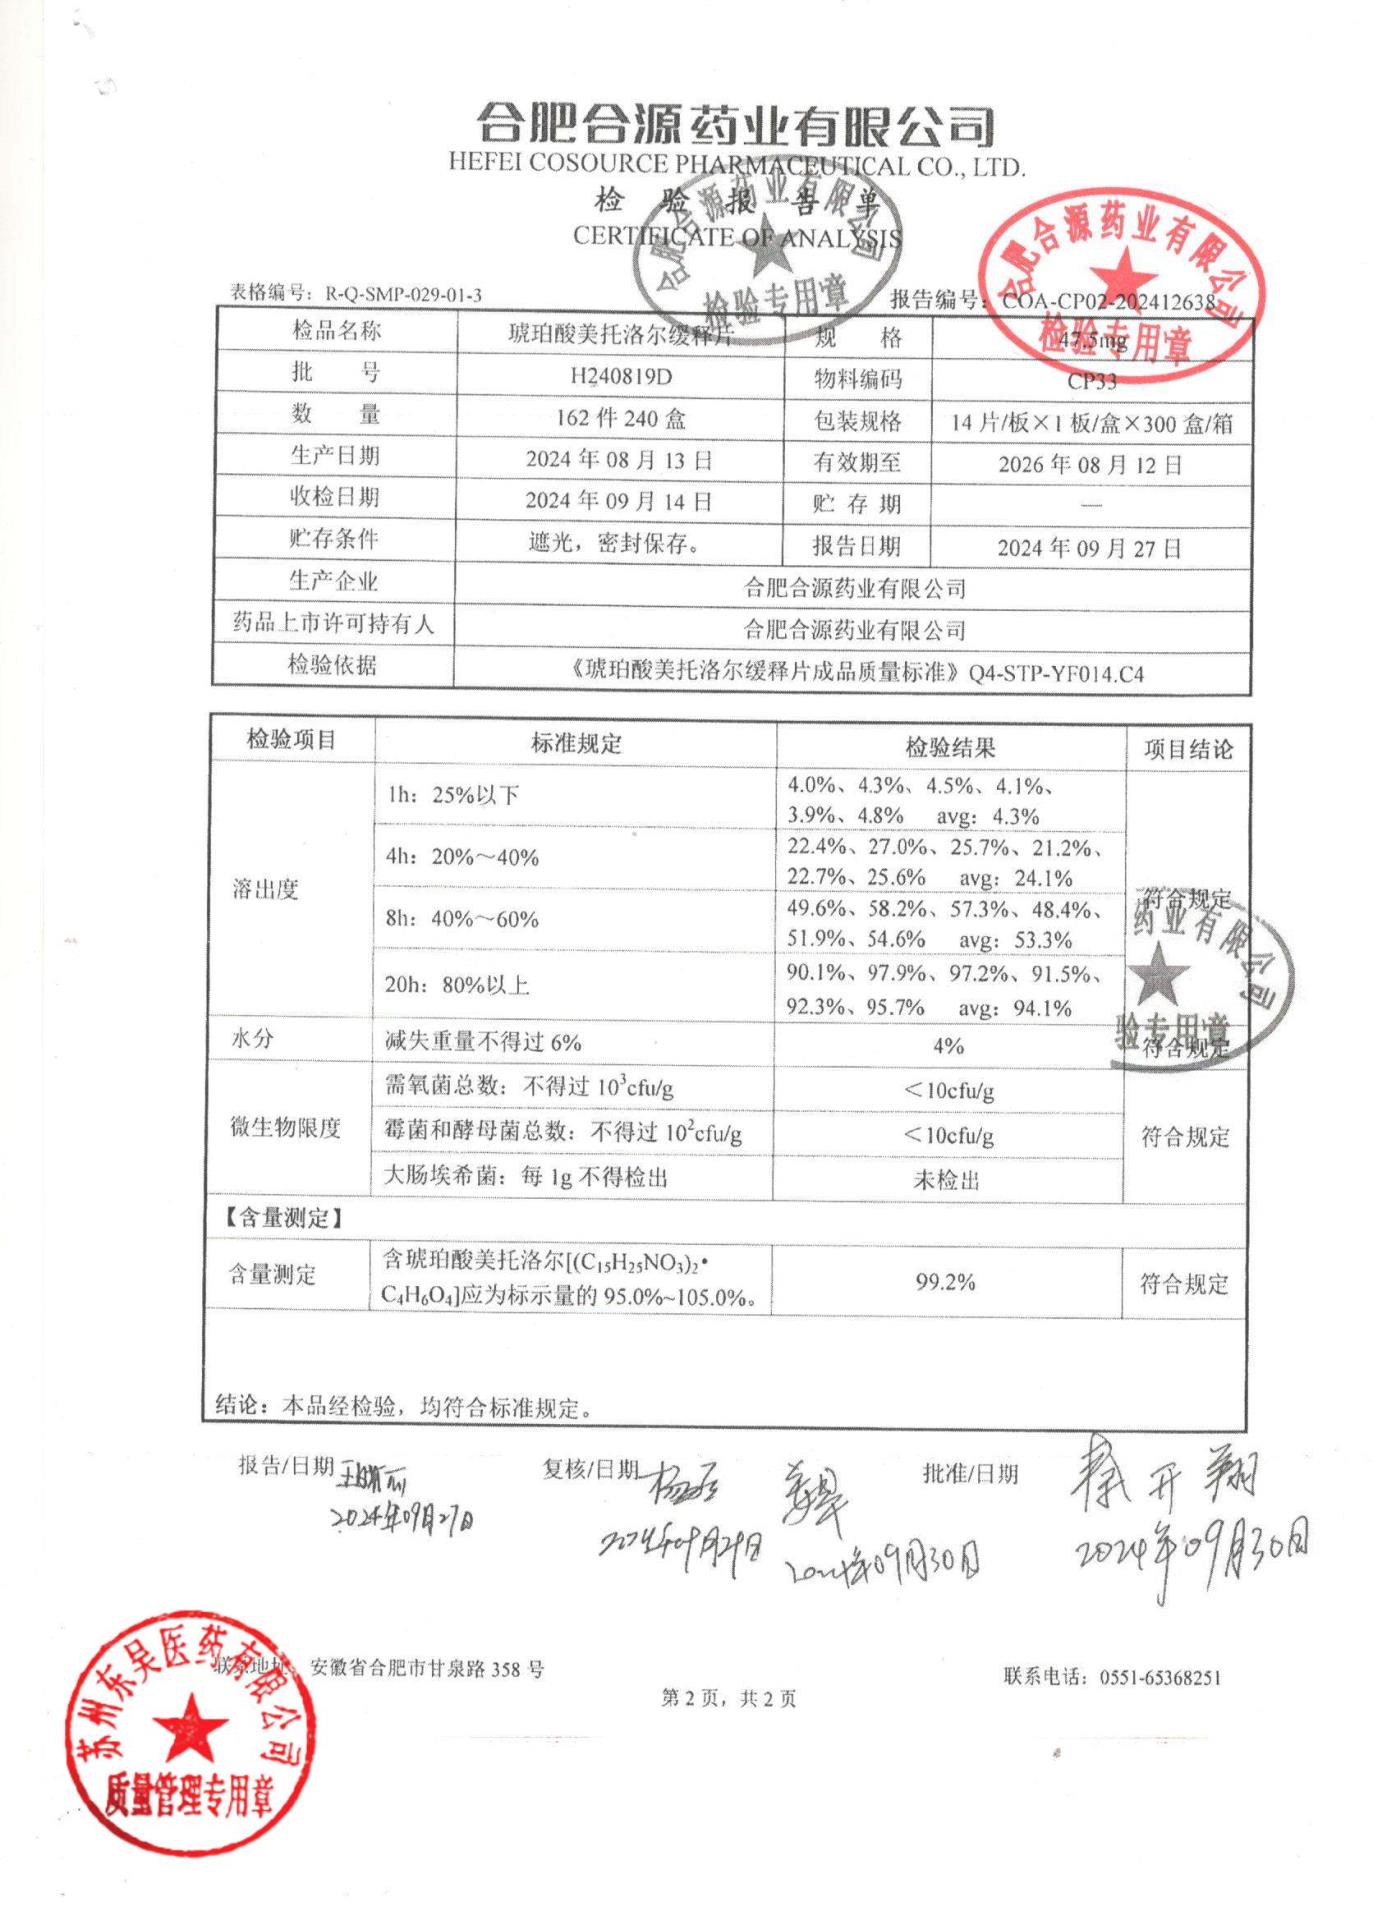 合肥合源药业有限公司
HEFEI COSOURCE PHARMACEUTICAL CO., LTD.
检 验 报 告 单
CERTIFICATE OF ANALYSIS
合肥合源药业有限公司
检验专用章
合肥合源药业有限公司
检验专用章
表格编号：R-Q-SMP-029-01-3 报告编号：COA-CP02-202412638
检品名称 琥珀酸美托洛尔缓释片 规 格 47.5mg
批 号 H240819D 物料编码 CP33
数 量 162 件 240 盒 包装规格 14 片/板×1 板/盒×300 盒/箱
生产日期 2024 年 08 月 13 日 有效期至 2026 年 08 月 12 日
收检日期 2024 年 09 月 14 日 贮 存 期 —
贮存条件 遮光，密封保存。 报告日期 2024 年 09 月 27 日
生产企业 合肥合源药业有限公司
药品上市许可持有人 合肥合源药业有限公司
检验依据 《琥珀酸美托洛尔缓释片成品质量标准》Q4-STP-YF014.C4
检验项目 标准规定 检验结果 项目结论
溶出度 1h：25%以下 4.0%、4.3%、4.5%、4.1%、
3.9%、4.8% avg：4.3%
4h：20%～40% 22.4%、27.0%、25.7%、21.2%、
22.7%、25.6% avg：24.1%
8h：40%～60% 49.6%、58.2%、57.3%、48.4%、 符合规定
51.9%、54.6% avg：53.3%
20h：80%以上 90.1%、97.9%、97.2%、91.5%、
92.3%、95.7% avg：94.1%
药业有限公司
验专用章
水分 减失重量不得过 6% 4% 符合规定
微生物限度 需氧菌总数：不得过 10³cfu/g ＜10cfu/g
霉菌和酵母菌总数：不得过 10²cfu/g ＜10cfu/g 符合规定
大肠埃希菌：每 1g 不得检出 未检出
【含量测定】
含量测定 含琥珀酸美托洛尔[(C₁₅H₂₅NO₃)₂•
C₄H₆O₄]应为标示量的 95.0%~105.0%。 99.2% 符合规定
结论：本品经检验，均符合标准规定。
报告/日期 复核/日期 批准/日期
2024年09月27日 2024年09月29日 2024年09月30日 2024年09月30日
联系地址：安徽省合肥市甘泉路 358 号 联系电话：0551-65368251
第 2 页，共 2 页
苏州东吴医药有限公司
质量管理专用章